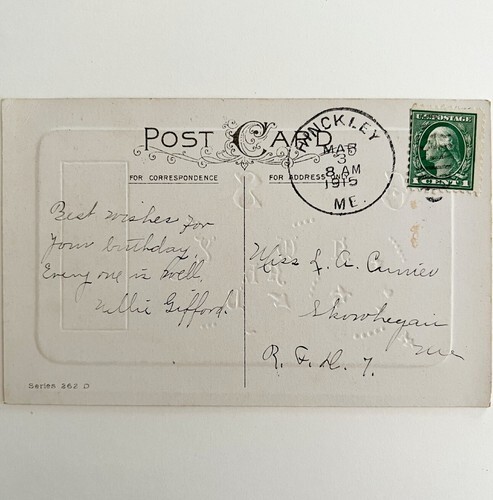 POST CARD
HINCKLEY
MAR
3
8 AM
1915
ME.
U.S. POSTAGE
1 CENT 1
FOR CORRESPONDENCE
FOR ADDRESS ONLY
Best wishes for
your birthday,
Every one is well.
Nellie Gifford.
Miss L. A. Currier
Skowhegan
Me
R. F. D. 7.
Series 262 D